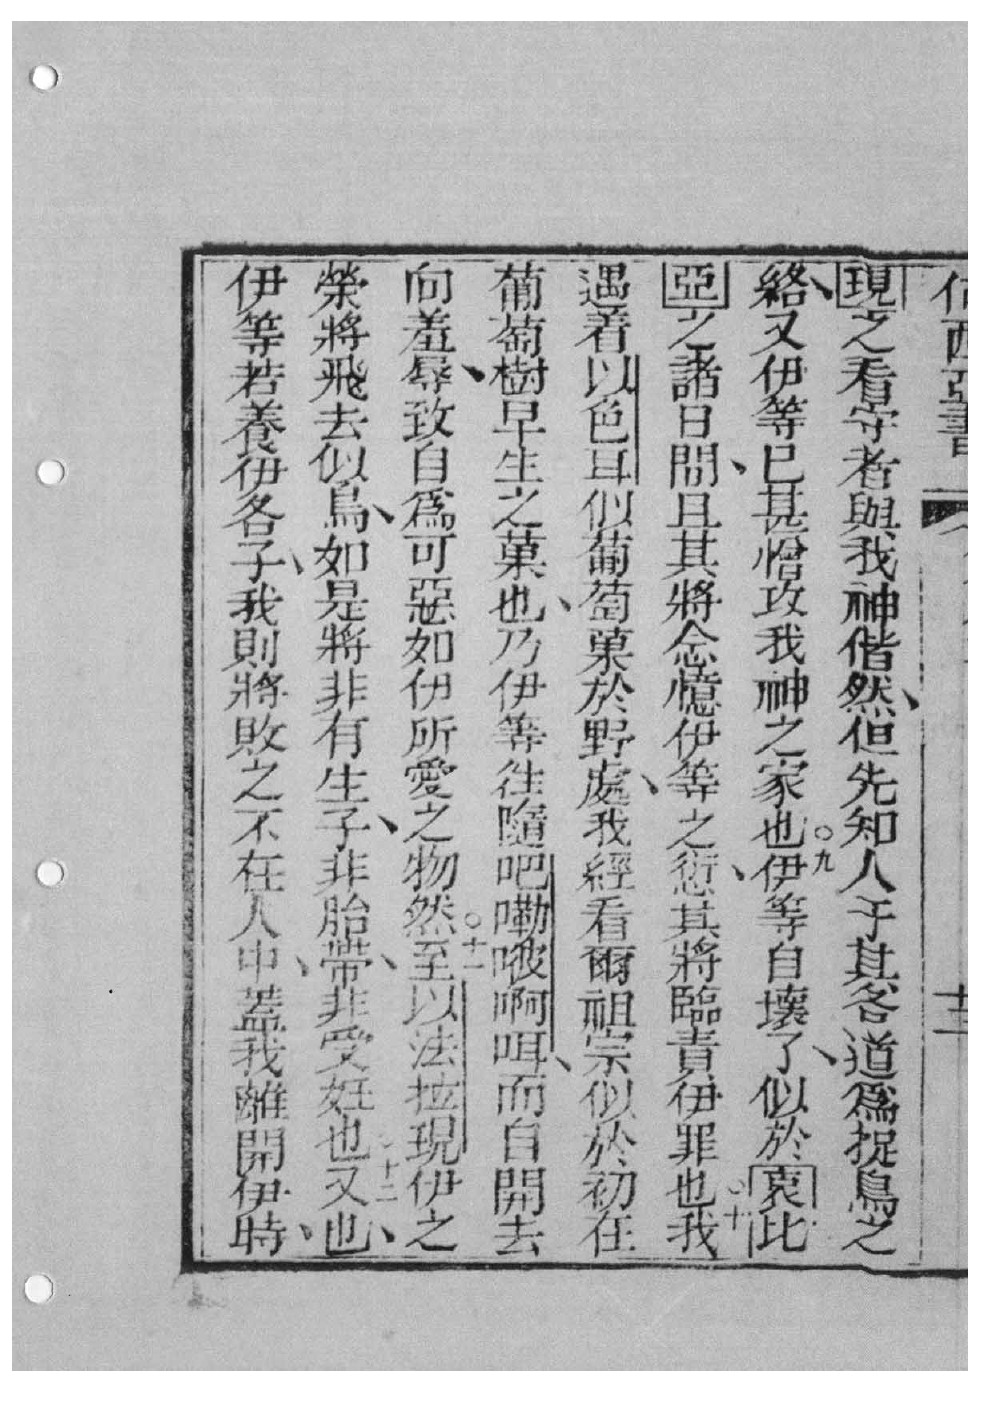 何西亞書 十二
現之看守者與我神偕然、但先知人于其各道爲捉鳥之
絡、又伊等已甚憎攻我神之家也○九伊等自壞了、似於㐮比
亞之諸日間、且其將念憶伊等之愆、其將臨責伊罪也○十我
遇着以色耳似葡萄菓於野處、我經看爾祖宗似於初在
葡萄樹早生之菓也、乃伊等往隨吧嘞㗑啊咡、而自開去
向羞辱、致自爲可惡如伊所愛之物然○十一至以法拉現伊之
榮將飛去似鳥、如是將非有生子、非胎帶、非受妊也○十二又也、
伊等若養伊各子、我則將敗之不在人中、蓋我離開伊時、